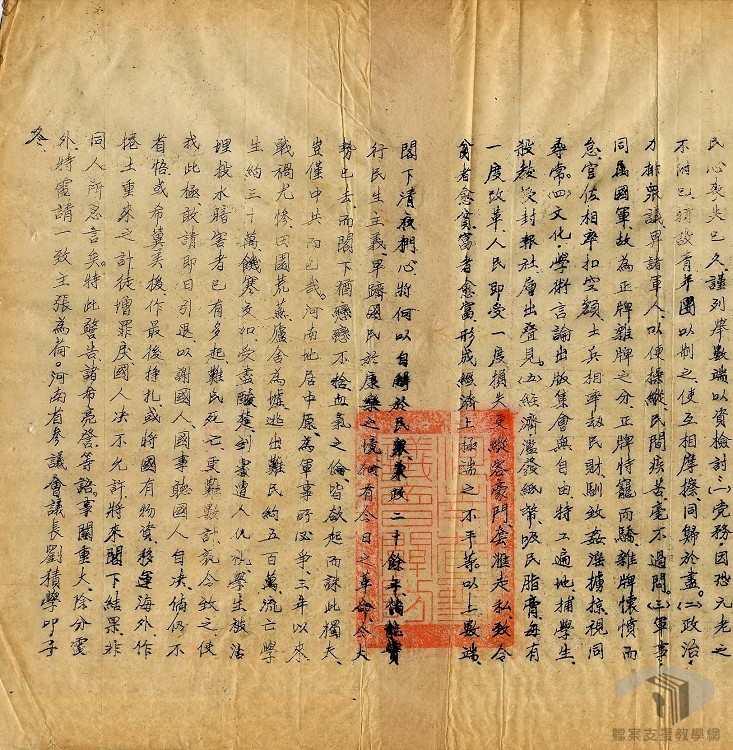 民心喪失已久、謹列举數端以資檢討、(一)党務、因恐元老之
不附己、猶設青年團以制之、使互相摩擦同歸於盡。(二)政治、
力排衆議畀諸軍人、以便操縱、民間疾苦、毫不過問。(三)軍事、
同属國軍、故為正牌雜牌之分、正牌恃寵而驕、雜牌懷憤而
怠、官佐相率扣空額、士兵相率劫民財、馴致姦淫擄掠、視同
尋常。(四)文化、學術言論出版集會無自由、特工遍地、捕學生、
殺教受、封報社、層出叠見。(五)經濟、濫發紙幣、吸民脂膏、每有
一度改革、人民即受一度損失、更縱容豪門套滙走私、致令
貧者愈貧、富者愈富、形成經濟上極端之不平等。以上數端、
閣下清夜捫心、將何以自解於民衆、秉政二十餘年、倘能實
行民生主義、早躋國民於康樂之境、何有今日之革命、今大
勢已去、而閣下猶戀戀不捨、血氣之倫、皆欲起而誅此獨夫、
豈僅中共而已哉。河南地居中原、為軍事所必爭、三年以來、
戰禍尤慘、田園荒蕪、廬舍為墟、逃出難民約五百萬、流亡學
生約三十萬、饑寒交加、受盡酸楚、到處遭人仇視、學生被活
埋投水暗害者已有多起、難民死亡更難數計、孰令致之、使
我此極、敢請即日引退、以謝國人、國事聽國人自决、倘仍不
省悟、或希冀美援作最後挣扎、或將國有物資、移運海外、作
捲土重來之計、徒增罪戾、國人决不允許、將來閣下結果、非
同人所忍言矣。特此警告、諸希亮詧等語。事關重大、除分電
外、特電請一致主張為荷。河南省參議會議長劉積學叩子
冬
檔案支援教學網